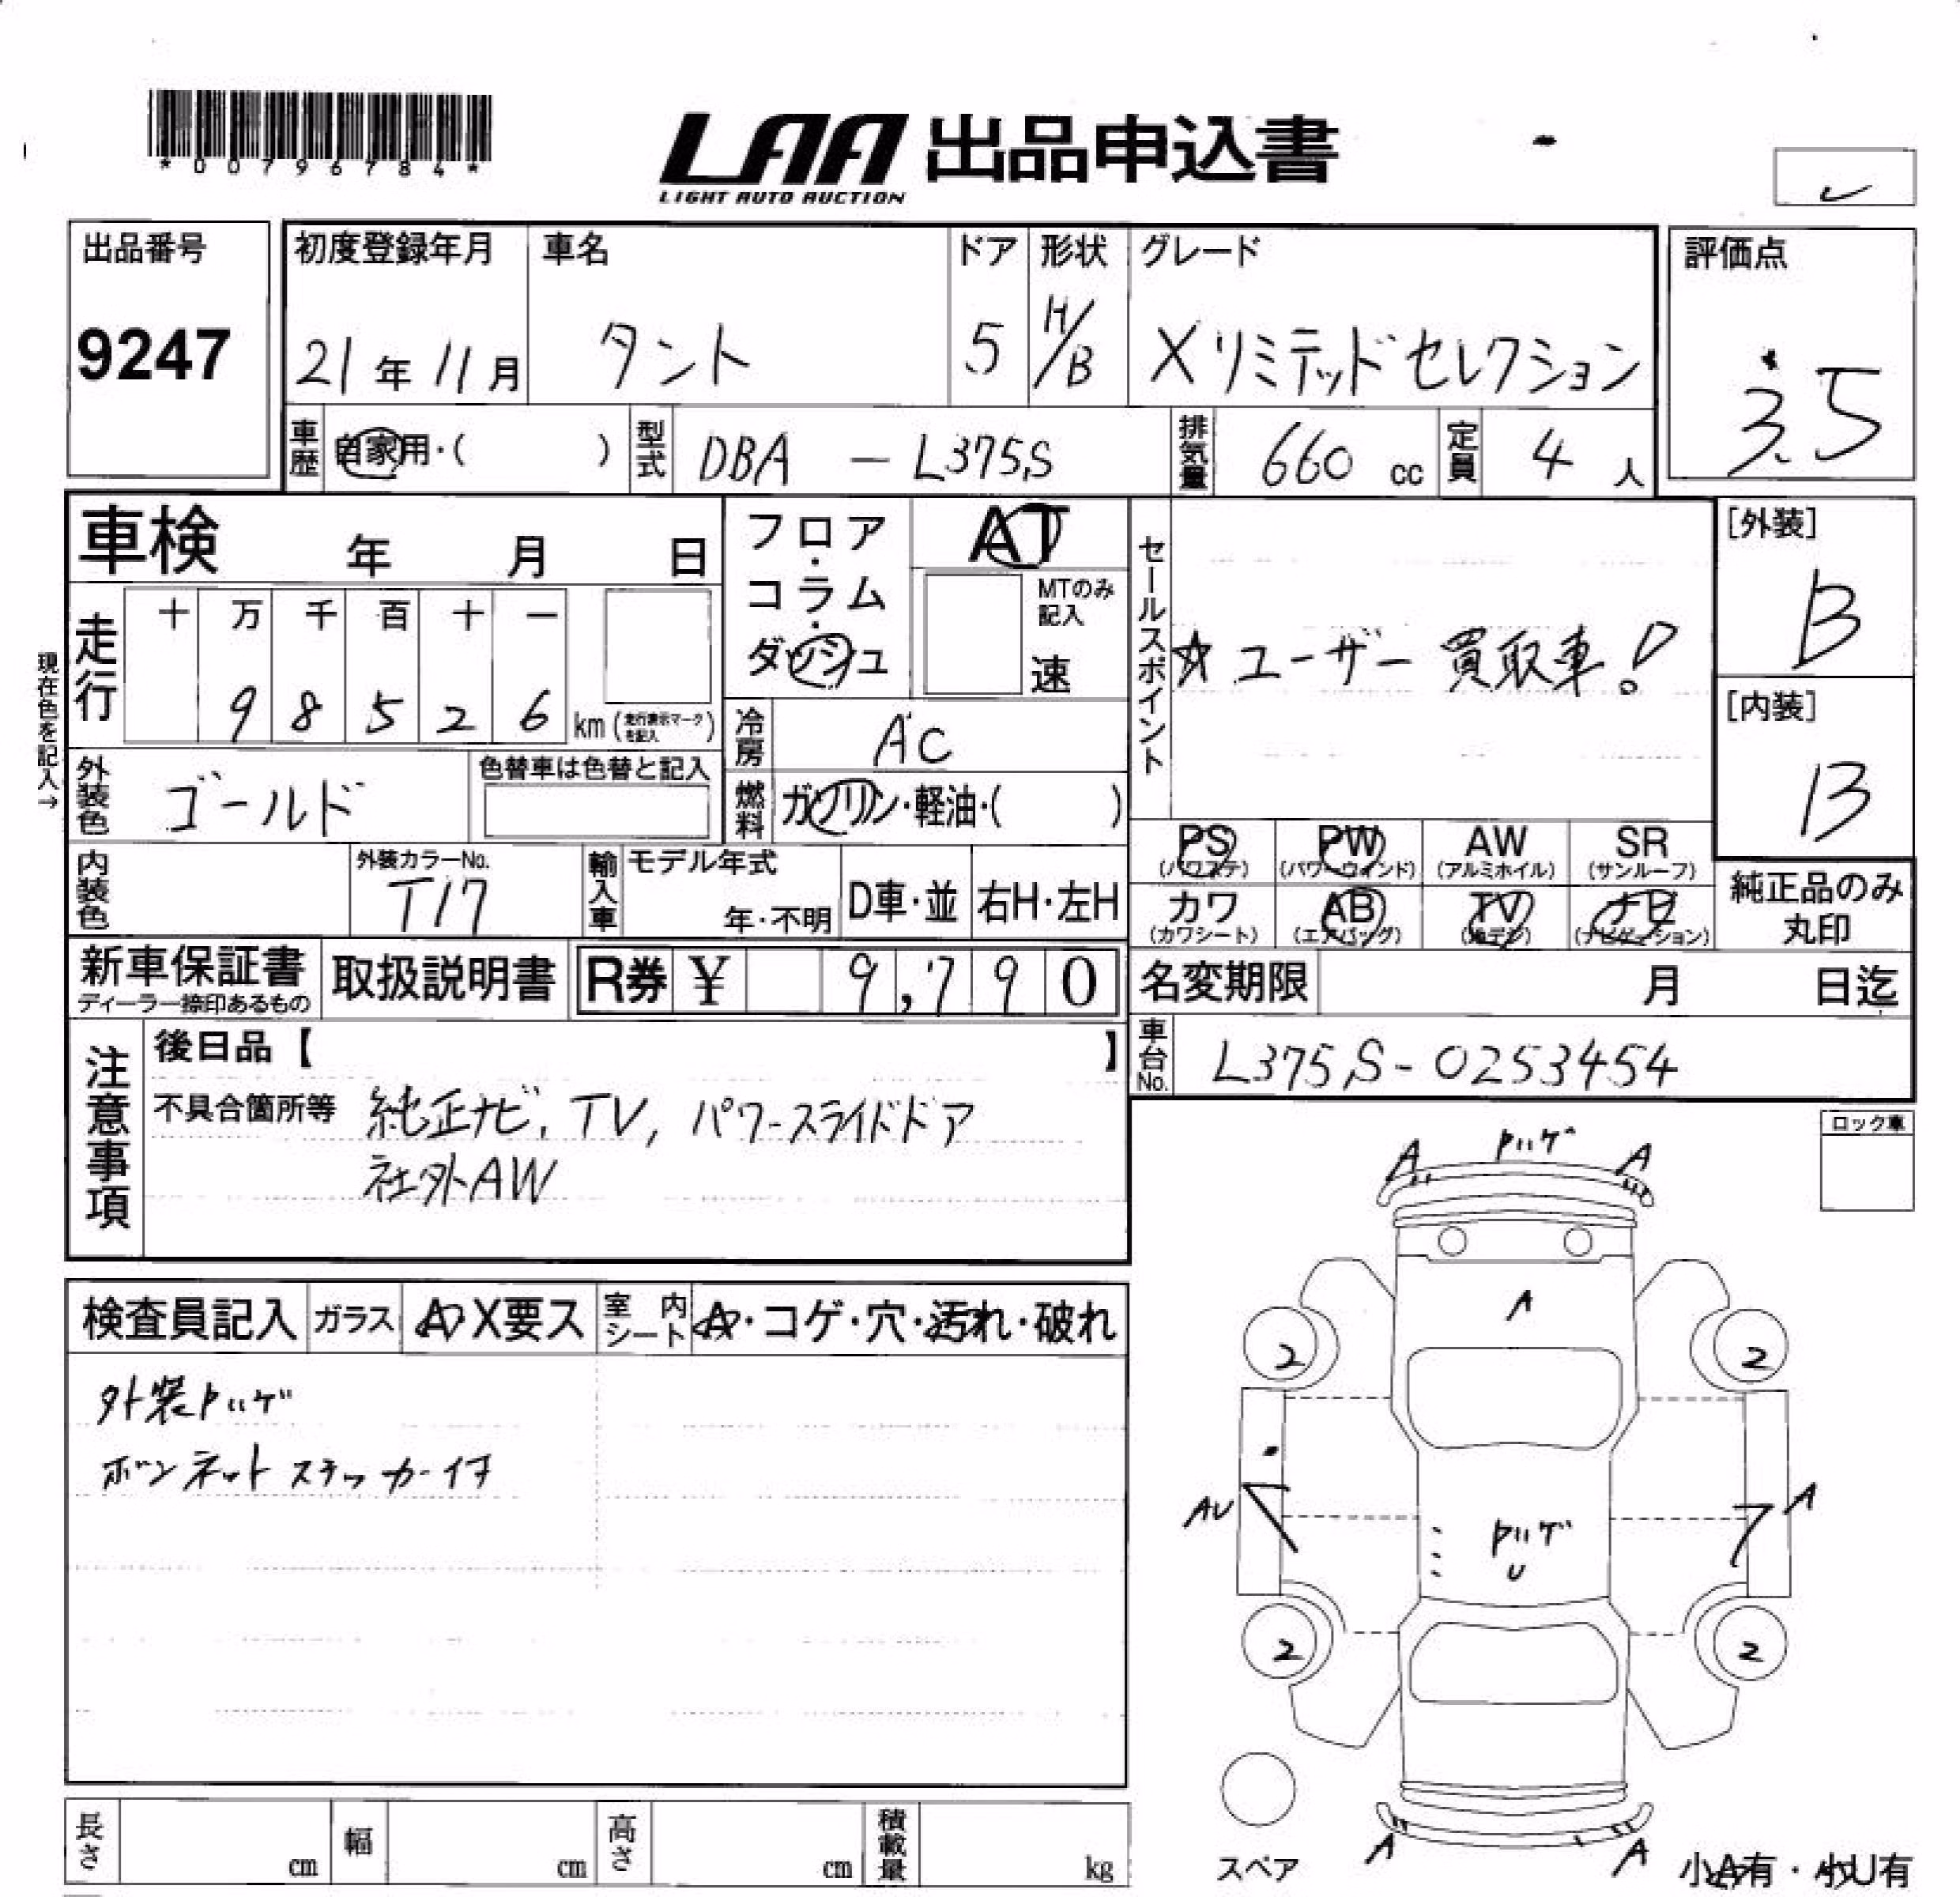 *00796784*
LAA 出品申込書
LIGHT AUTO AUCTION
出品番号
9247
初度登録年月
21年11月
車名
タント
ドア
5
形状
H/B
グレード
Xリミテッドセレクション
評価点
3.5
車歴
自家用・( )
型式
DBA - L375S
排気量
660 cc
定員
4 人
車検 年 月 日
フロア・コラム・ダッシュ
AT
MTのみ記入
速
セールスポイント
☆ユーザー買取車!
[外装]
B
[内装]
B
現在色を記入→
走行
十 万 千 百 十 一
9 8 5 2 6 km (走行表示マークを記入)
冷房
AC
燃料
ガソリン・軽油・( )
外装色
ゴールド
色替車は色替と記入
内装色
外装カラーNo.
T17
輸入車
モデル年式
年・不明
D車・並
右H・左H
PS (パワステ)
PW (パワーウィンド)
AW (アルミホイル)
SR (サンルーフ)
カワ (カワシート)
AB (エアバッグ)
TV (地デジ)
ナビ (ナビゲーション)
純正品のみ丸印
新車保証書
ディーラー捺印あるもの
取扱説明書
R券 ¥ 9,790
名変期限 月 日迄
車台No.
L375S-0253454
注意事項
後日品【 】
不具合箇所等 純正ナビ, TV, パワースライドドア
社外AW
ロック車
A トバゲ A
検査員記入
ガラス
A X要ス
室内シート
A・コゲ・穴・汚れ・破れ
外装トバゲ
ボンネットステッカー付
A
2 2
AU A
トバゲ
U
2 2
スペア
A A
小A有・小U有
長さ cm
幅 cm
高さ cm
積載量 kg